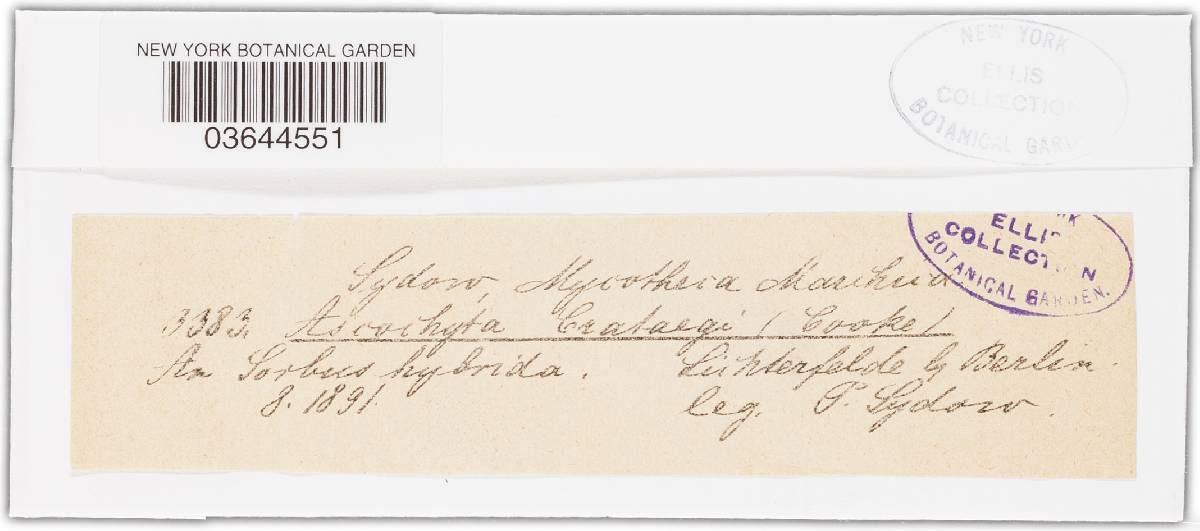 NEW YORK BOTANICAL GARDEN
03644551
NEW YORK
ELLIS
COLLECTION
BOTANICAL GARD
ELLIS
COLLECTION
BOTANICAL GARDEN.
Sydow, Mycotheca Marchica
3383. Ascochyta Crataegi (Cooke)
An Sorbus hybrida. Lichterfelde b/ Berlin.
8. 1891. leg. P. Sydow.